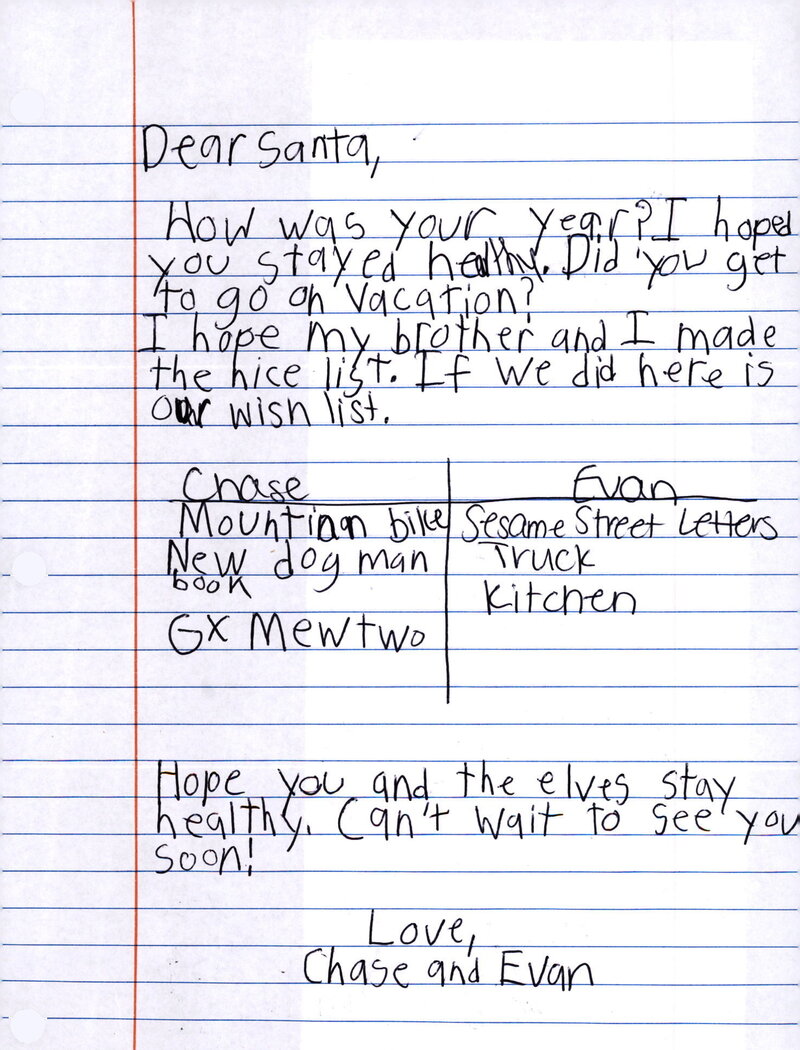 Dear Santa,
How was your year? I hoped
you stayed healthy. Did you get
to go on vacation?
I hope my brother and I made
the nice list. If we did here is
our wish list.
Chase Evan
Mountinan bike Sesame Street Letters
New dog man Truck
book
Kitchen
GX Mewtwo
Hope you and the elves stay
healthy. Can't wait to see you
soon!
Love,
Chase and Evan